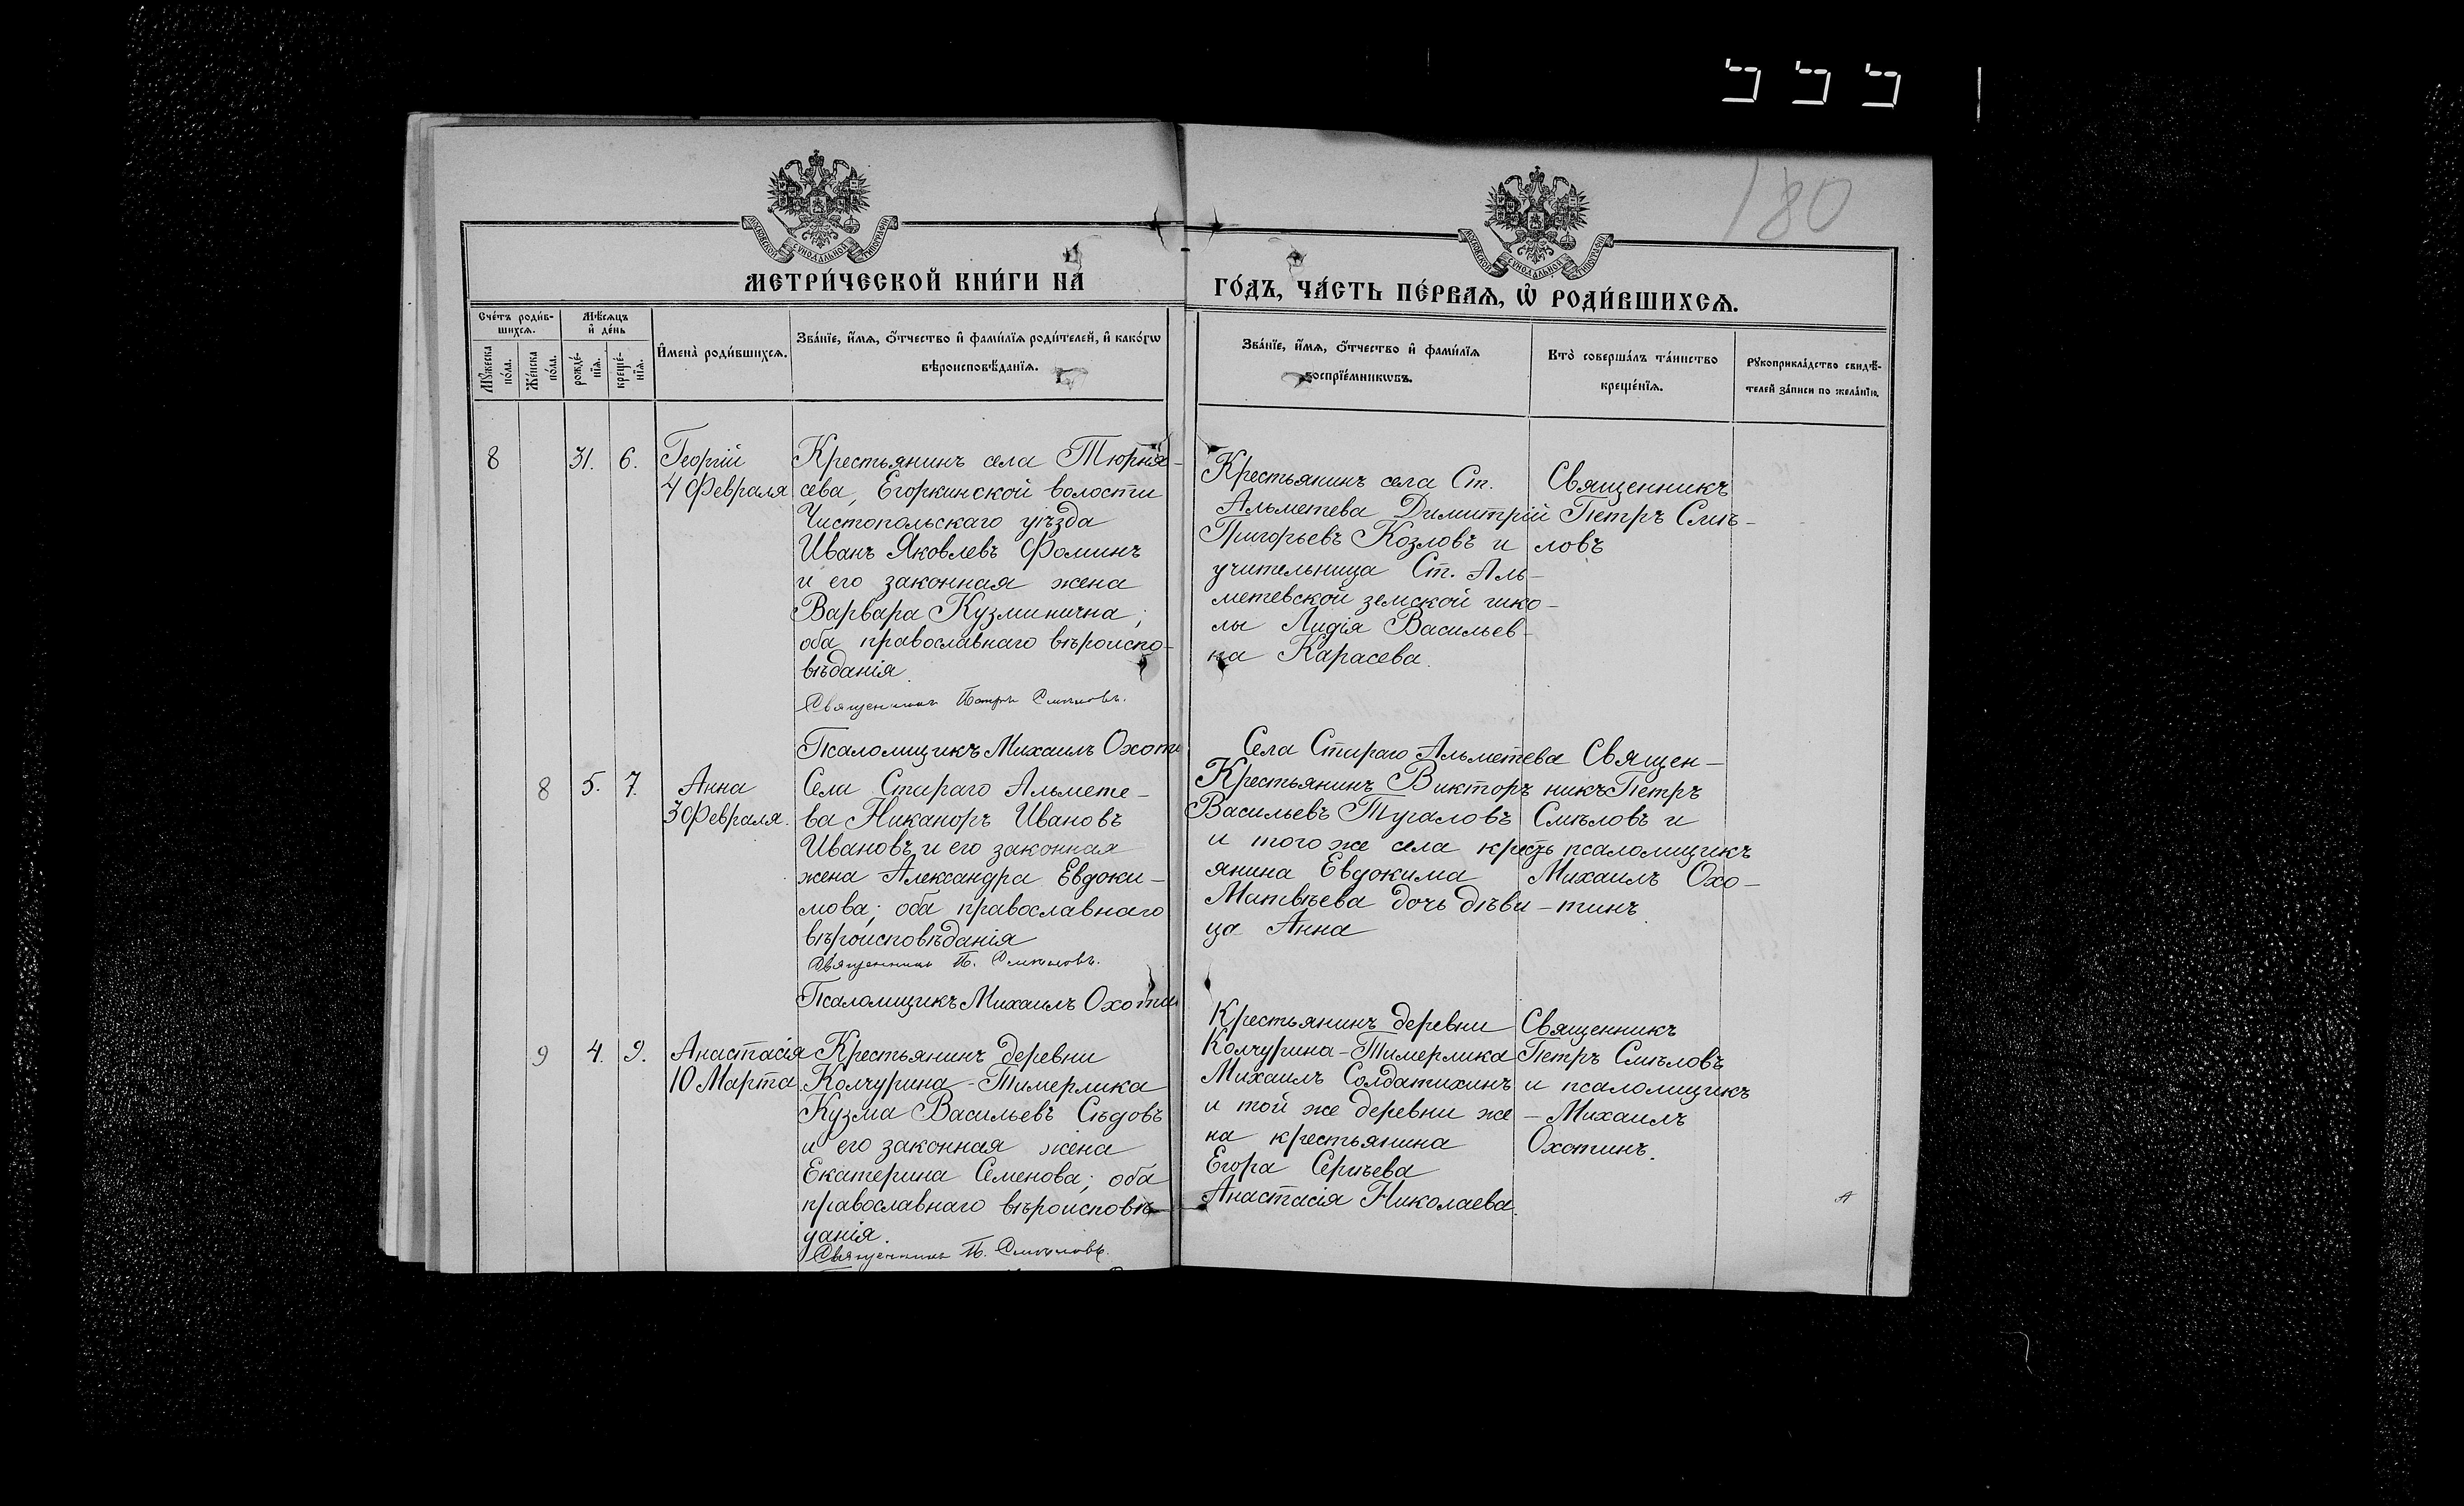 180
МЕТРИ́ЧЕСКОЙ КНИ́ГИ НА
ГО́ДЪ, ЧА́СТЬ ПЕ́РВАѦ, Ѡ҆ РОДИ́ВШИХСѦ.
Сче́тъ роди́в-
шихсѧ.
Мѣ́сѧцъ
и҆ де́нь
Мꙋ́жеска
по́ла.
Же́нска
по́ла.
рожде́-
нїѧ.
креще́-
нїѧ.
И҆мена̀ роди́вшихсѧ.
Зва́нїе, и҆́мѧ, ѻ҆́тчество и҆ фамѝлїѧ роди́телей, и҆ како́гѡ
вѣроисповѣ́данїѧ.
Зва́нїе, и҆́мѧ, ѻ҆́тчество и҆ фами́лїѧ
воспрїе́мникѡвъ.
Кто̀ соверша́лъ та́инство
креще́нїѧ.
Рꙋкоприкла́дство свидѣ́-
телей за́писи по жела́нїю.
8 31. 6. Георгій
4 Февраля
Крестьянинъ села Тюрня-
сева, Егоркинской волости
Чистопольскаго уѣзда
Иванъ Яковлевъ Фоминъ
и его законная жена
Варвара Кузминична;
оба православнаго вѣроиспо-
вѣданія.
Священникъ Петръ Смѣловъ.
Псаломщикъ Михаилъ Охоти
Крестьянинъ села Ст.
Альметева Димитрій
Григорьевъ Козловъ и
учительница Ст. Аль-
метевской земской шко-
лы Лидія Васильев-
на Карасева.
Священникъ
Петръ Смѣ-
ловъ
8 5. 7. Анна
3 Февраля.
Села Стараго Альмете-
ва Никаноръ Ивановъ
Ивановъ и его законная
жена Александра Евдоки-
мова; оба православнаго
вѣроисповѣданія
Священникъ П. Смѣловъ.
Псаломщикъ Михаилъ Охоти
Села Стараго Альметева
Крестьянинъ Викторъ
Васильевъ Тугаловъ
и того же села кресть
янина Евдокима
Матвѣева дочь дѣви-
ца Анна
Священ-
никъ Петръ
Смѣловъ и
псаломщикъ
Михаилъ Охо-
тинъ
9 4. 9. Анастасія
10 Марта
Крестьянинъ деревни
Колчурина-Тимерлика
Кузма Васильевъ Сѣдовъ
и его законная жена
Екатерина Семенова; оба
православнаго вѣроисповѣ-
данія.
Священникъ П. Смѣловъ.
Крестьянинъ деревни
Колчурина-Тимерлика
Михаилъ Солдатихинъ
и той же деревни же-
на крестьянина
Егора Сергѣева
Анастасія Николаева.
Священникъ
Петръ Смѣловъ
и псаломщикъ
Михаилъ
Охотинъ.